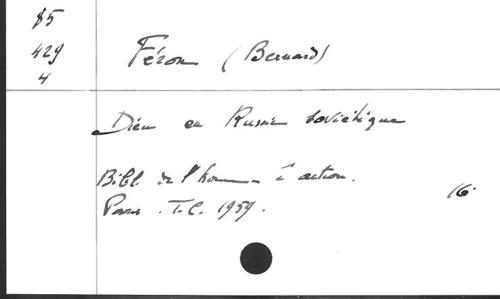 85
429
4
Féron (Bernard)
Dieu en Russie soviétique
Bibl. de l'homme d'action.
Paris. T.C. 1959.
16